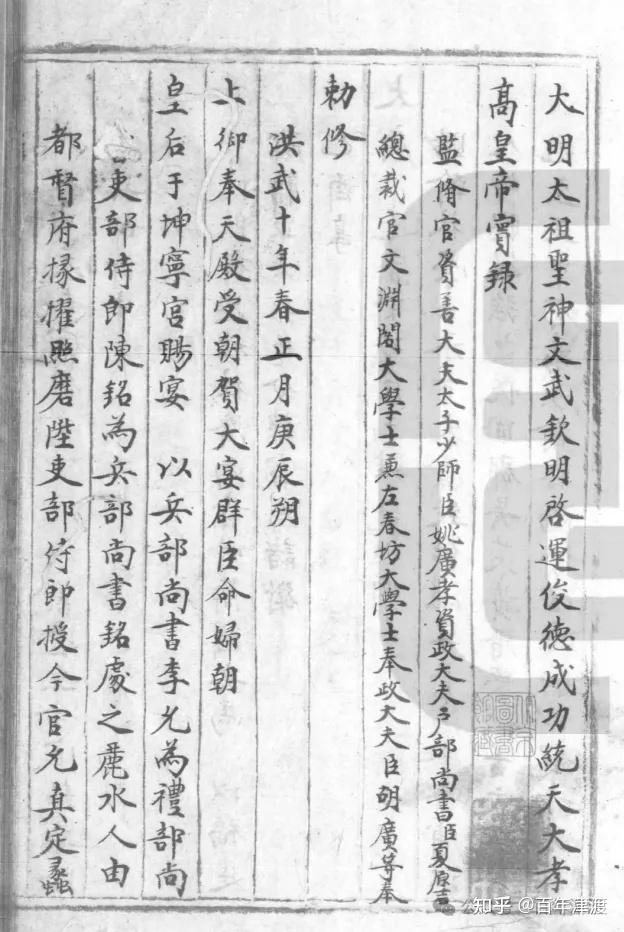 大明太祖聖神文武欽明啓運俊德成功統天大孝
高皇帝實録
監脩官資善大夫太子少師臣姚廣孝資政大夫戶部尚書臣夏原吉
總裁官文淵閣大學士兼左春坊大學士奉政大夫臣胡廣等奉
勅修
洪武十年春正月庚辰朔
上御奉天殿受朝賀大宴群臣命婦朝
皇后于坤寧宮賜宴 以兵部尚書李允為禮部尚
書吏部侍郎陳銘為兵部尚書銘處之麗水人由
都督府掾擢照磨陞吏部侍郎授今官允真定蠡
知乎 @百年津渡